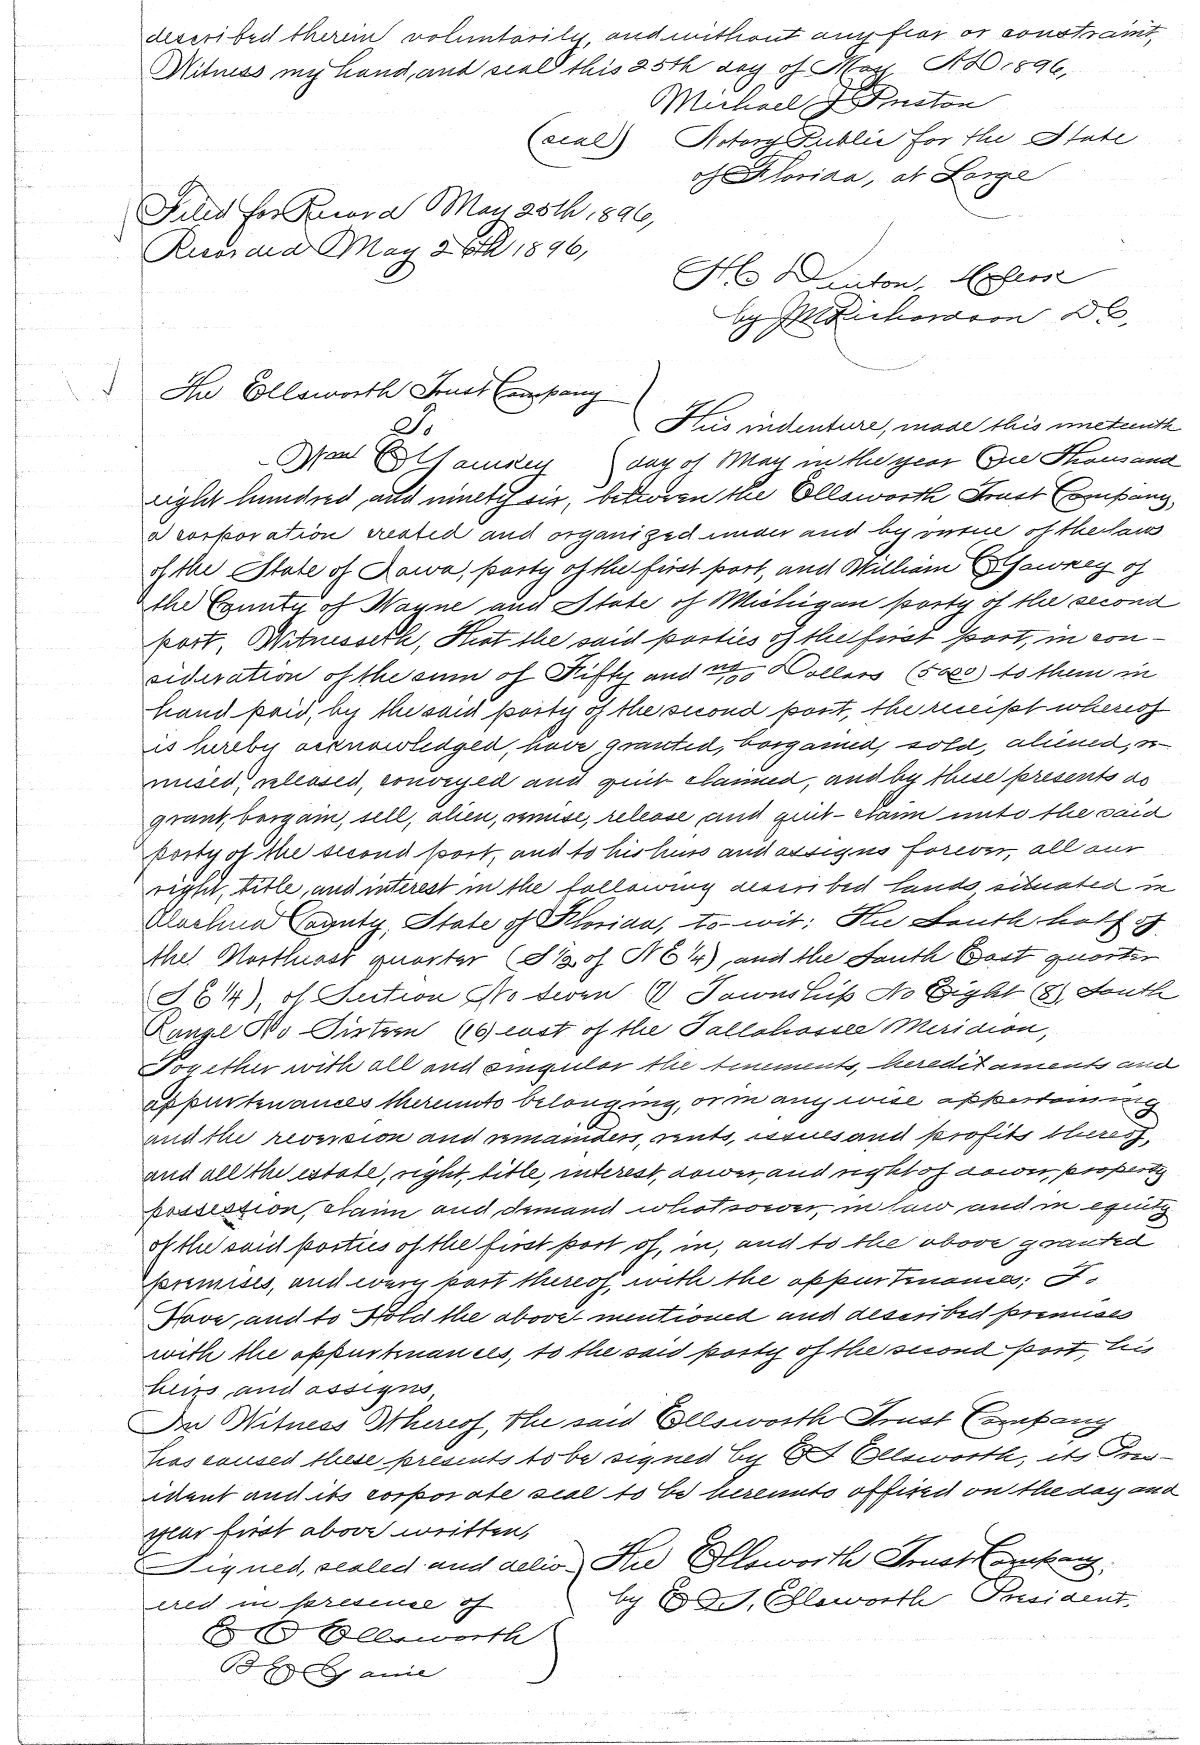 described therein voluntarily, and without any fear or constraint,
Witness my hand, and seal this 25th day of May AD 1896,
Michael J Preston
(seal) Notary Public for the State
of Florida, at Large
Filed for Record May 25th 1896,
Recorded May 26th 1896,
H C Denton, Clerk
by J M Richardson D C,
The Ellsworth Trust Company
To
This indenture, made this nineteenth
Wm C Yawkey day of May in the year One Thousand
eight hundred, and ninety six, between the Ellsworth Trust Company,
a corporation created and organized under and by virtue of the laws
of the State of Iowa, party of the first part, and William C Yawkey of
the County of Wayne and State of Michigan party of the second
part, Witnesseth, That the said parties of the first part, in con-
sideration of the sum of Fifty and no/100 Dollars (5000) to them in
hand paid, by the said party of the second part, the receipt whereof
is hereby acknowledged, have granted, bargained, sold, aliened, re-
mised, released, conveyed and quit claimed, and by these presents do
grant, bargain, sell, alien, remise, release, and quit-claim unto the said
party of the second part, and to his heirs and assigns forever, all our
right, title, and interest in the following described lands, situated in
Alachua County, State of Florida, to-wit: The South half of
the Northeast quarter (S 1/2 of N E 1/4), and the South East quarter
(S. E 1/4), of Section No Seven (7) Township No Eight (8) South
Range No Sixteen (16) east of the Tallahassee Meridian,
Together with all and singular the tenements, hereditaments and
appurtenances thereunto belonging, or in any wise appertaining
and the reversion and remainders, rents, issues and profits thereof,
and all the estate, right, title, interest, dower, and right of dower, property
possession, claim and demand whatsoever, in law and in equity
of the said parties of the first part of, in, and to the above granted
premises, and every part thereof, with the appurtenances; To
Have, and to Hold the above mentioned and described premises
with the appurtenances, to the said party of the second part, his
heirs, and assigns,
In Witness Whereof, the said Ellsworth Trust Company
has caused these presents to be signed by E S Ellsworth, its Pres-
ident and its corporate seal to be hereunto affixed on the day and
year first above written,
Signed, sealed and deliv- The Ellsworth Trust Company,
ered in presence of by E S, Ellsworth President.
E O Ellsworth
B